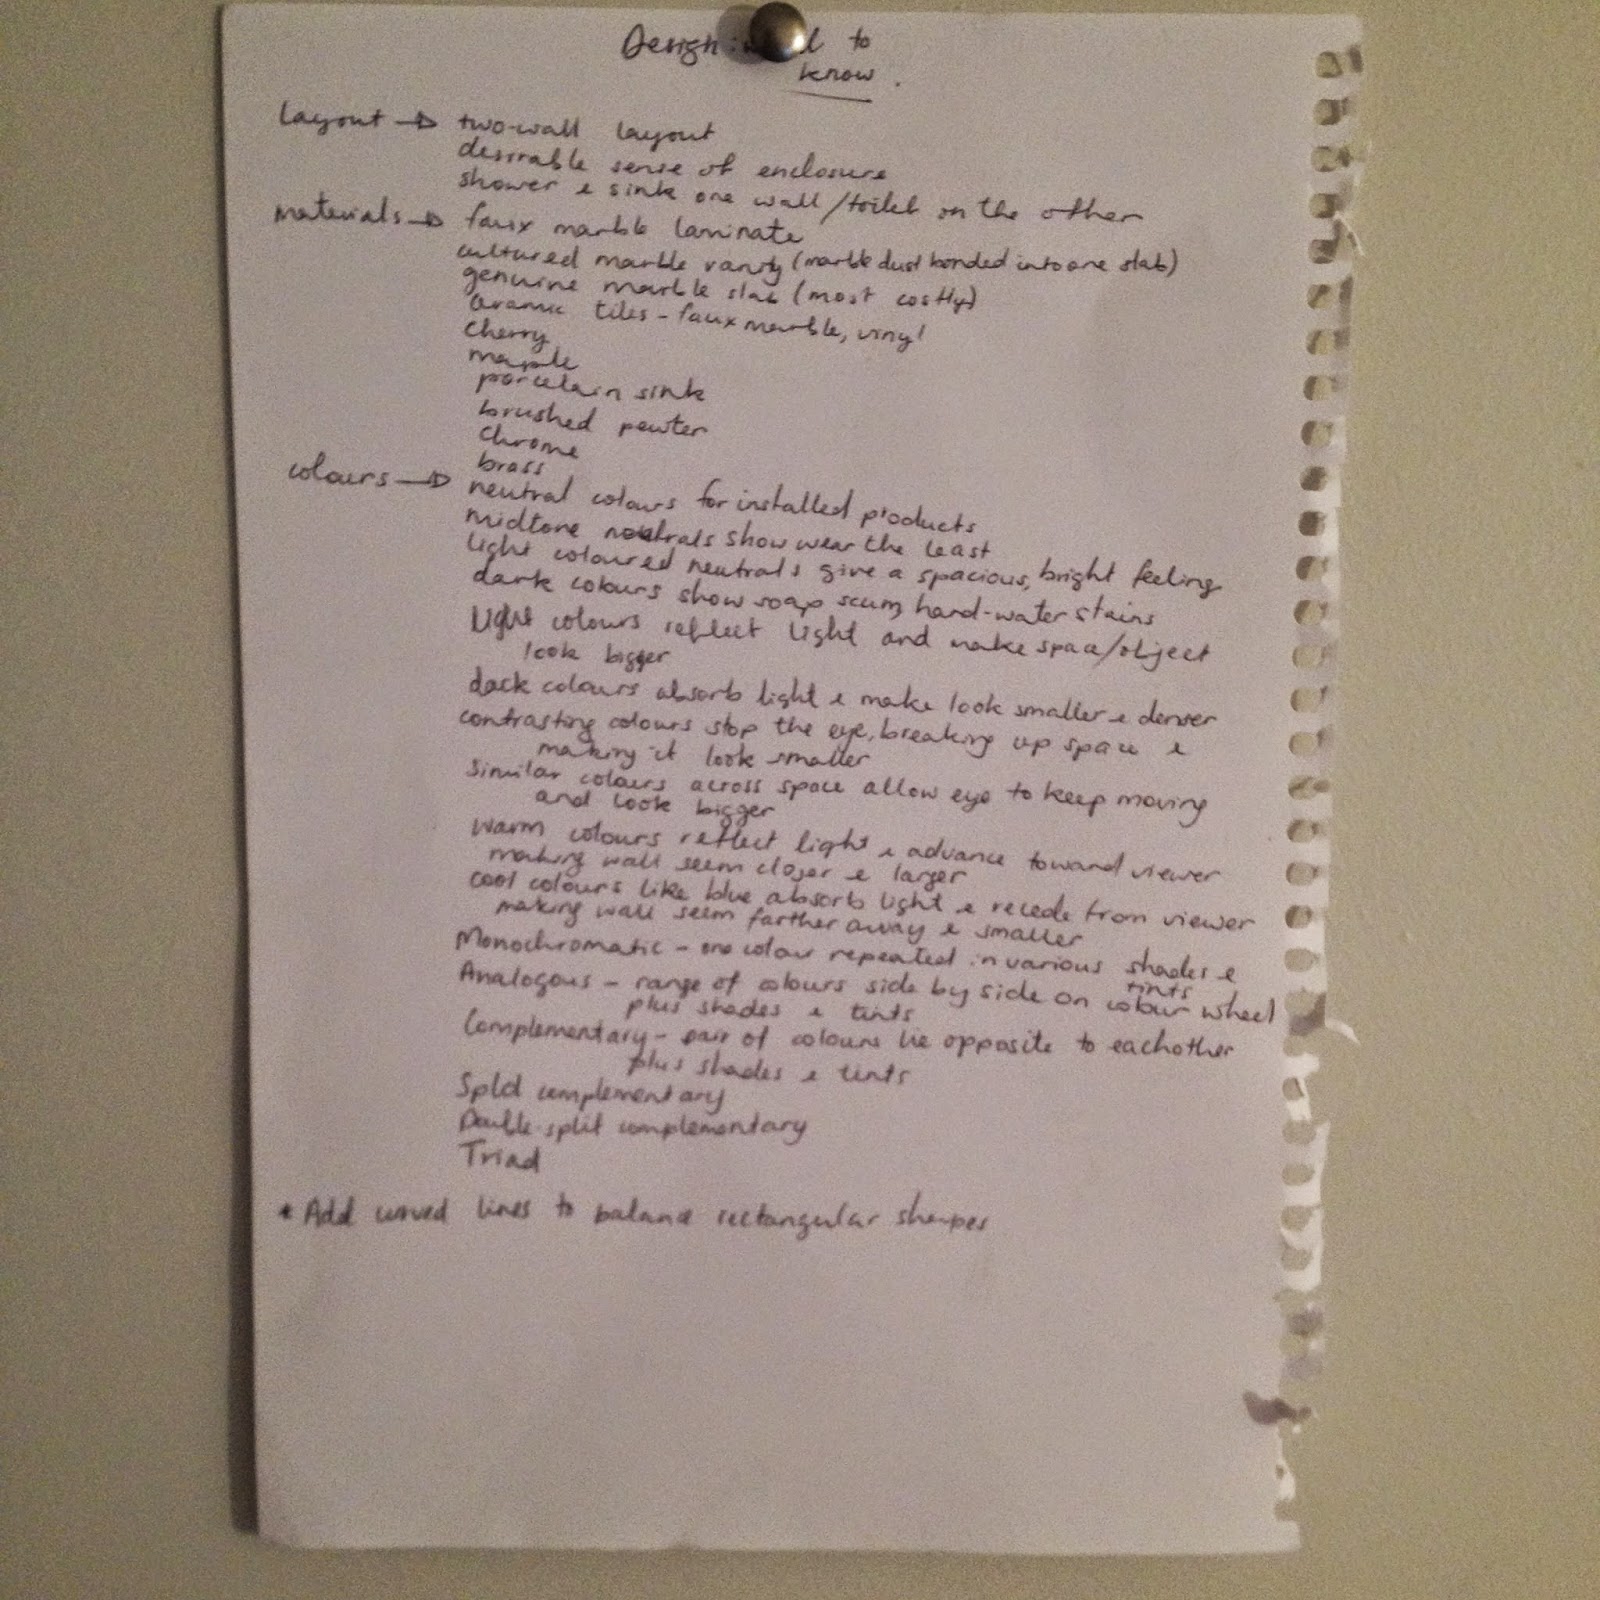 Design: to
know.
layout → two-wall layout
desirable sense of enclosure
shower & sink one wall/toilet on the other
materials → faux marble laminate
cultured marble vanity (marble dust bonded into one slab)
genuine marble slab (most costly)
ceramic tiles - faux marble, vinyl
cherry
maple
porcelain sink
brushed pewter
chrome
brass
colours → neutral colours for installed products
midtone neutrals show wear the least
light coloured neutrals give a spacious, bright feeling
dark colours show soap scum, hard-water stains
Light colours reflect light and make space/object
look bigger
dark colours absorb light & make look smaller & denser
contrasting colours stop the eye, breaking up space &
making it look smaller
similar colours across space allow eye to keep moving
and look bigger
warm colours reflect light & advance toward viewer
making wall seem closer & larger
cool colours like blue absorb light & recede from viewer
making wall seem farther away & smaller
Monochromatic - one colour repeated in various shades &
tints
Analogous - range of colours side by side on colour wheel
plus shades & tints
Complementary - pair of colours lie opposite to eachother
plus shades & tints
Split complementary
Double-split complementary
Triad
* Add curved lines to balance rectangular shapes